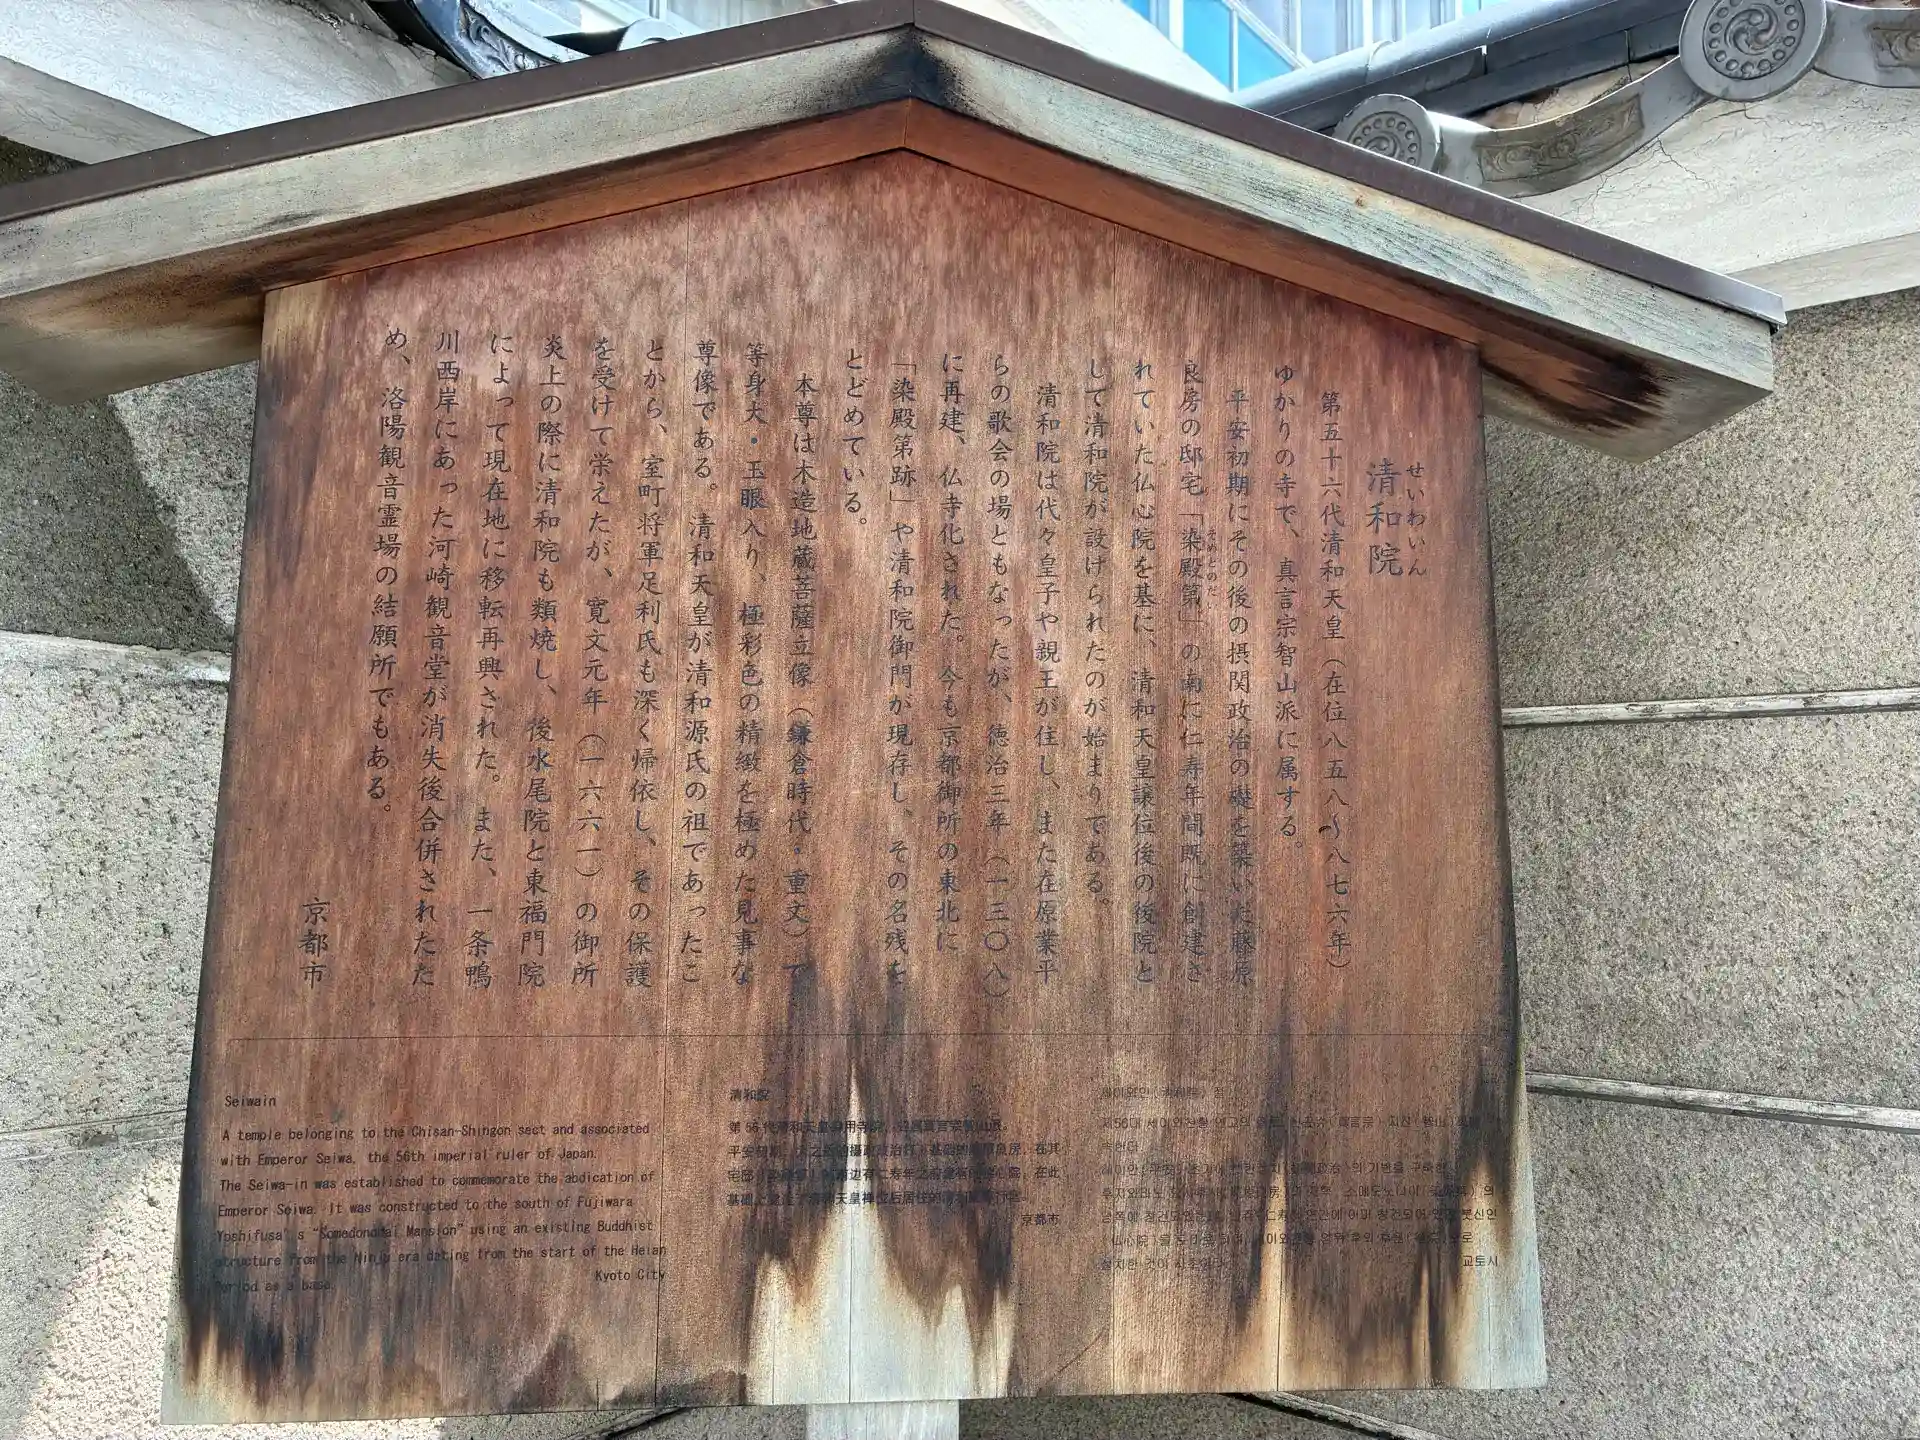 清和院
せいわいん
第五十六代清和天皇（在位八五八～八七六年）
ゆかりの寺で、真言宗智山派に属する。
平安初期にその後の摂関政治の礎を築いた藤原
良房の邸宅「染殿第」の南に仁寿年間既に創建さ
そめどのだい
れていた仏心院を基に、清和天皇譲位後の後院と
して清和院が設けられたのが始まりである。
清和院は代々皇子や親王が住し、また在原業平
らの歌会の場ともなったが、徳治三年（一三〇八）
に再建、仏寺化された。今も京都御所の東北に
「染殿第跡」や清和院御門が現存し、その名残を
とどめている。
本尊は木造地蔵菩薩立像（鎌倉時代・重文）で
等身大・玉眼入り、極彩色の精緻を極めた見事な
尊像である。清和天皇が清和源氏の祖であったこ
とから、室町将軍足利氏も深く帰依し、その保護
を受けて栄えたが、寛文元年（一六六一）の御所
炎上の際に清和院も類焼し、後水尾院と東福門院
によって現在地に移転再興された。また、一条鴨
川西岸にあった河崎観音堂が消失後合併されたた
め、洛陽観音霊場の結願所でもある。
京都市
Seiwain
A temple belonging to the Chisan-Shingon sect and associated
with Emperor Seiwa, the 56th imperial ruler of Japan.
The Seiwa-in was established to commemorate the abdication of
Emperor Seiwa. It was constructed to the south of Fujiwara
Yoshifusa's "Somedonodai Mansion" using an existing Buddhist
structure from the Ninju era dating from the start of the Heian
Period as a base.
Kyoto City
清和院
第 56 代清和天皇
平安初期，
京都市
교토시